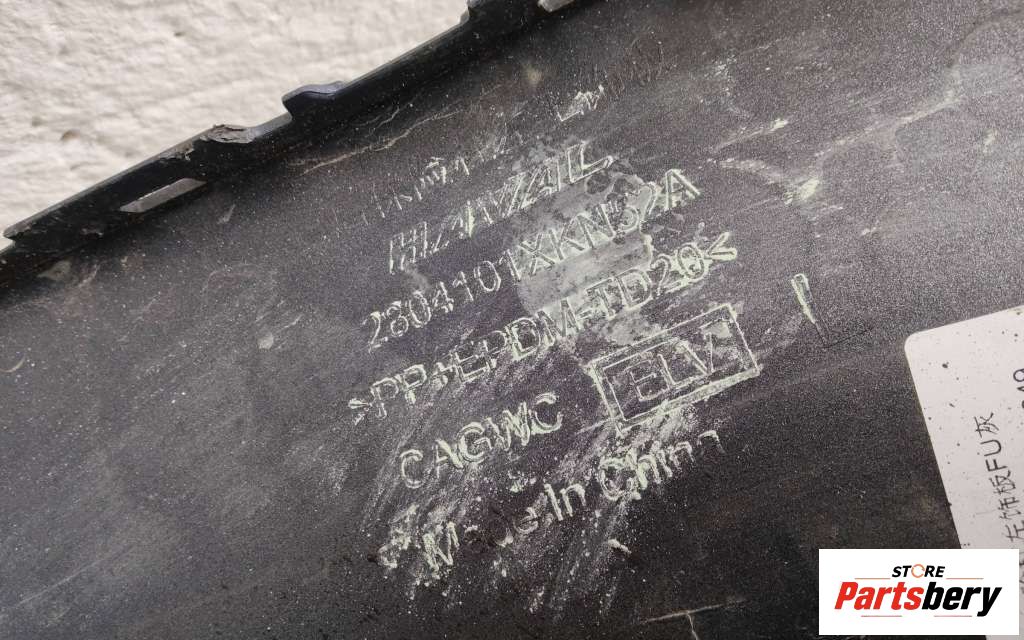 HAVAL
2804101XKN52A
>PP+EPDM-TD20<
L
CAGWC ELV
Made In China
左饰板FU灰
STORE
Partsbery